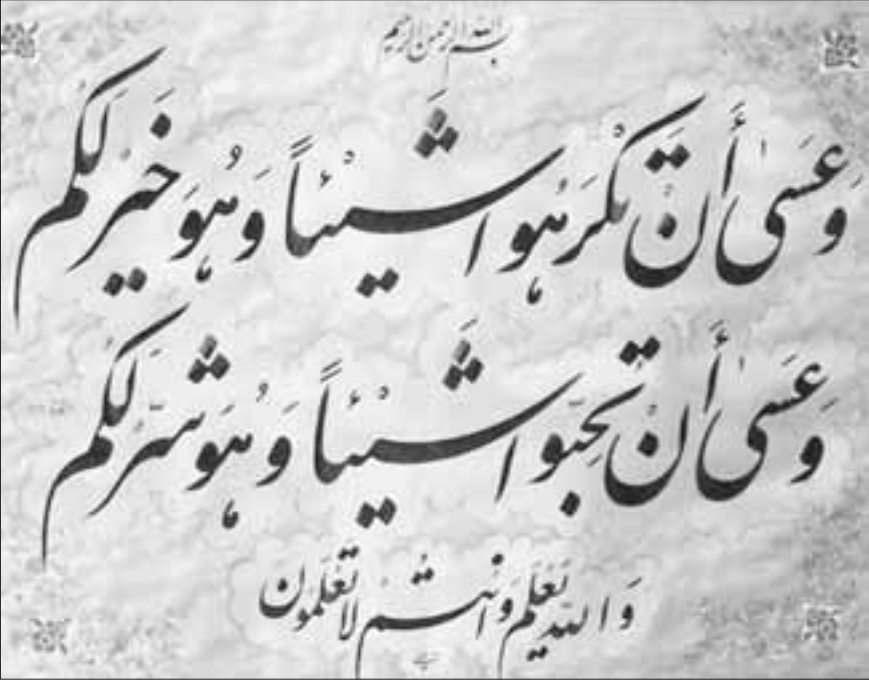 بسم الله الرحمن الرحیم
وَعَسَىٰ أَن تَكْرَهُوا شَيْئاً وَهُوَ خَيْرٌ لَكُم
وَعَسَىٰ أَن تُحِبّوا شَيْئاً وَهُوَ شَرّ لَكُم
وَالله يَعْلَم وَانتُم لاتَعْلَمُون